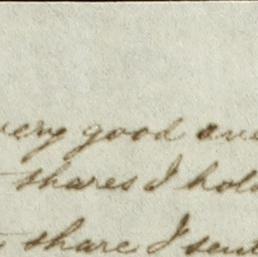 very good one
shares I hold
share I sent